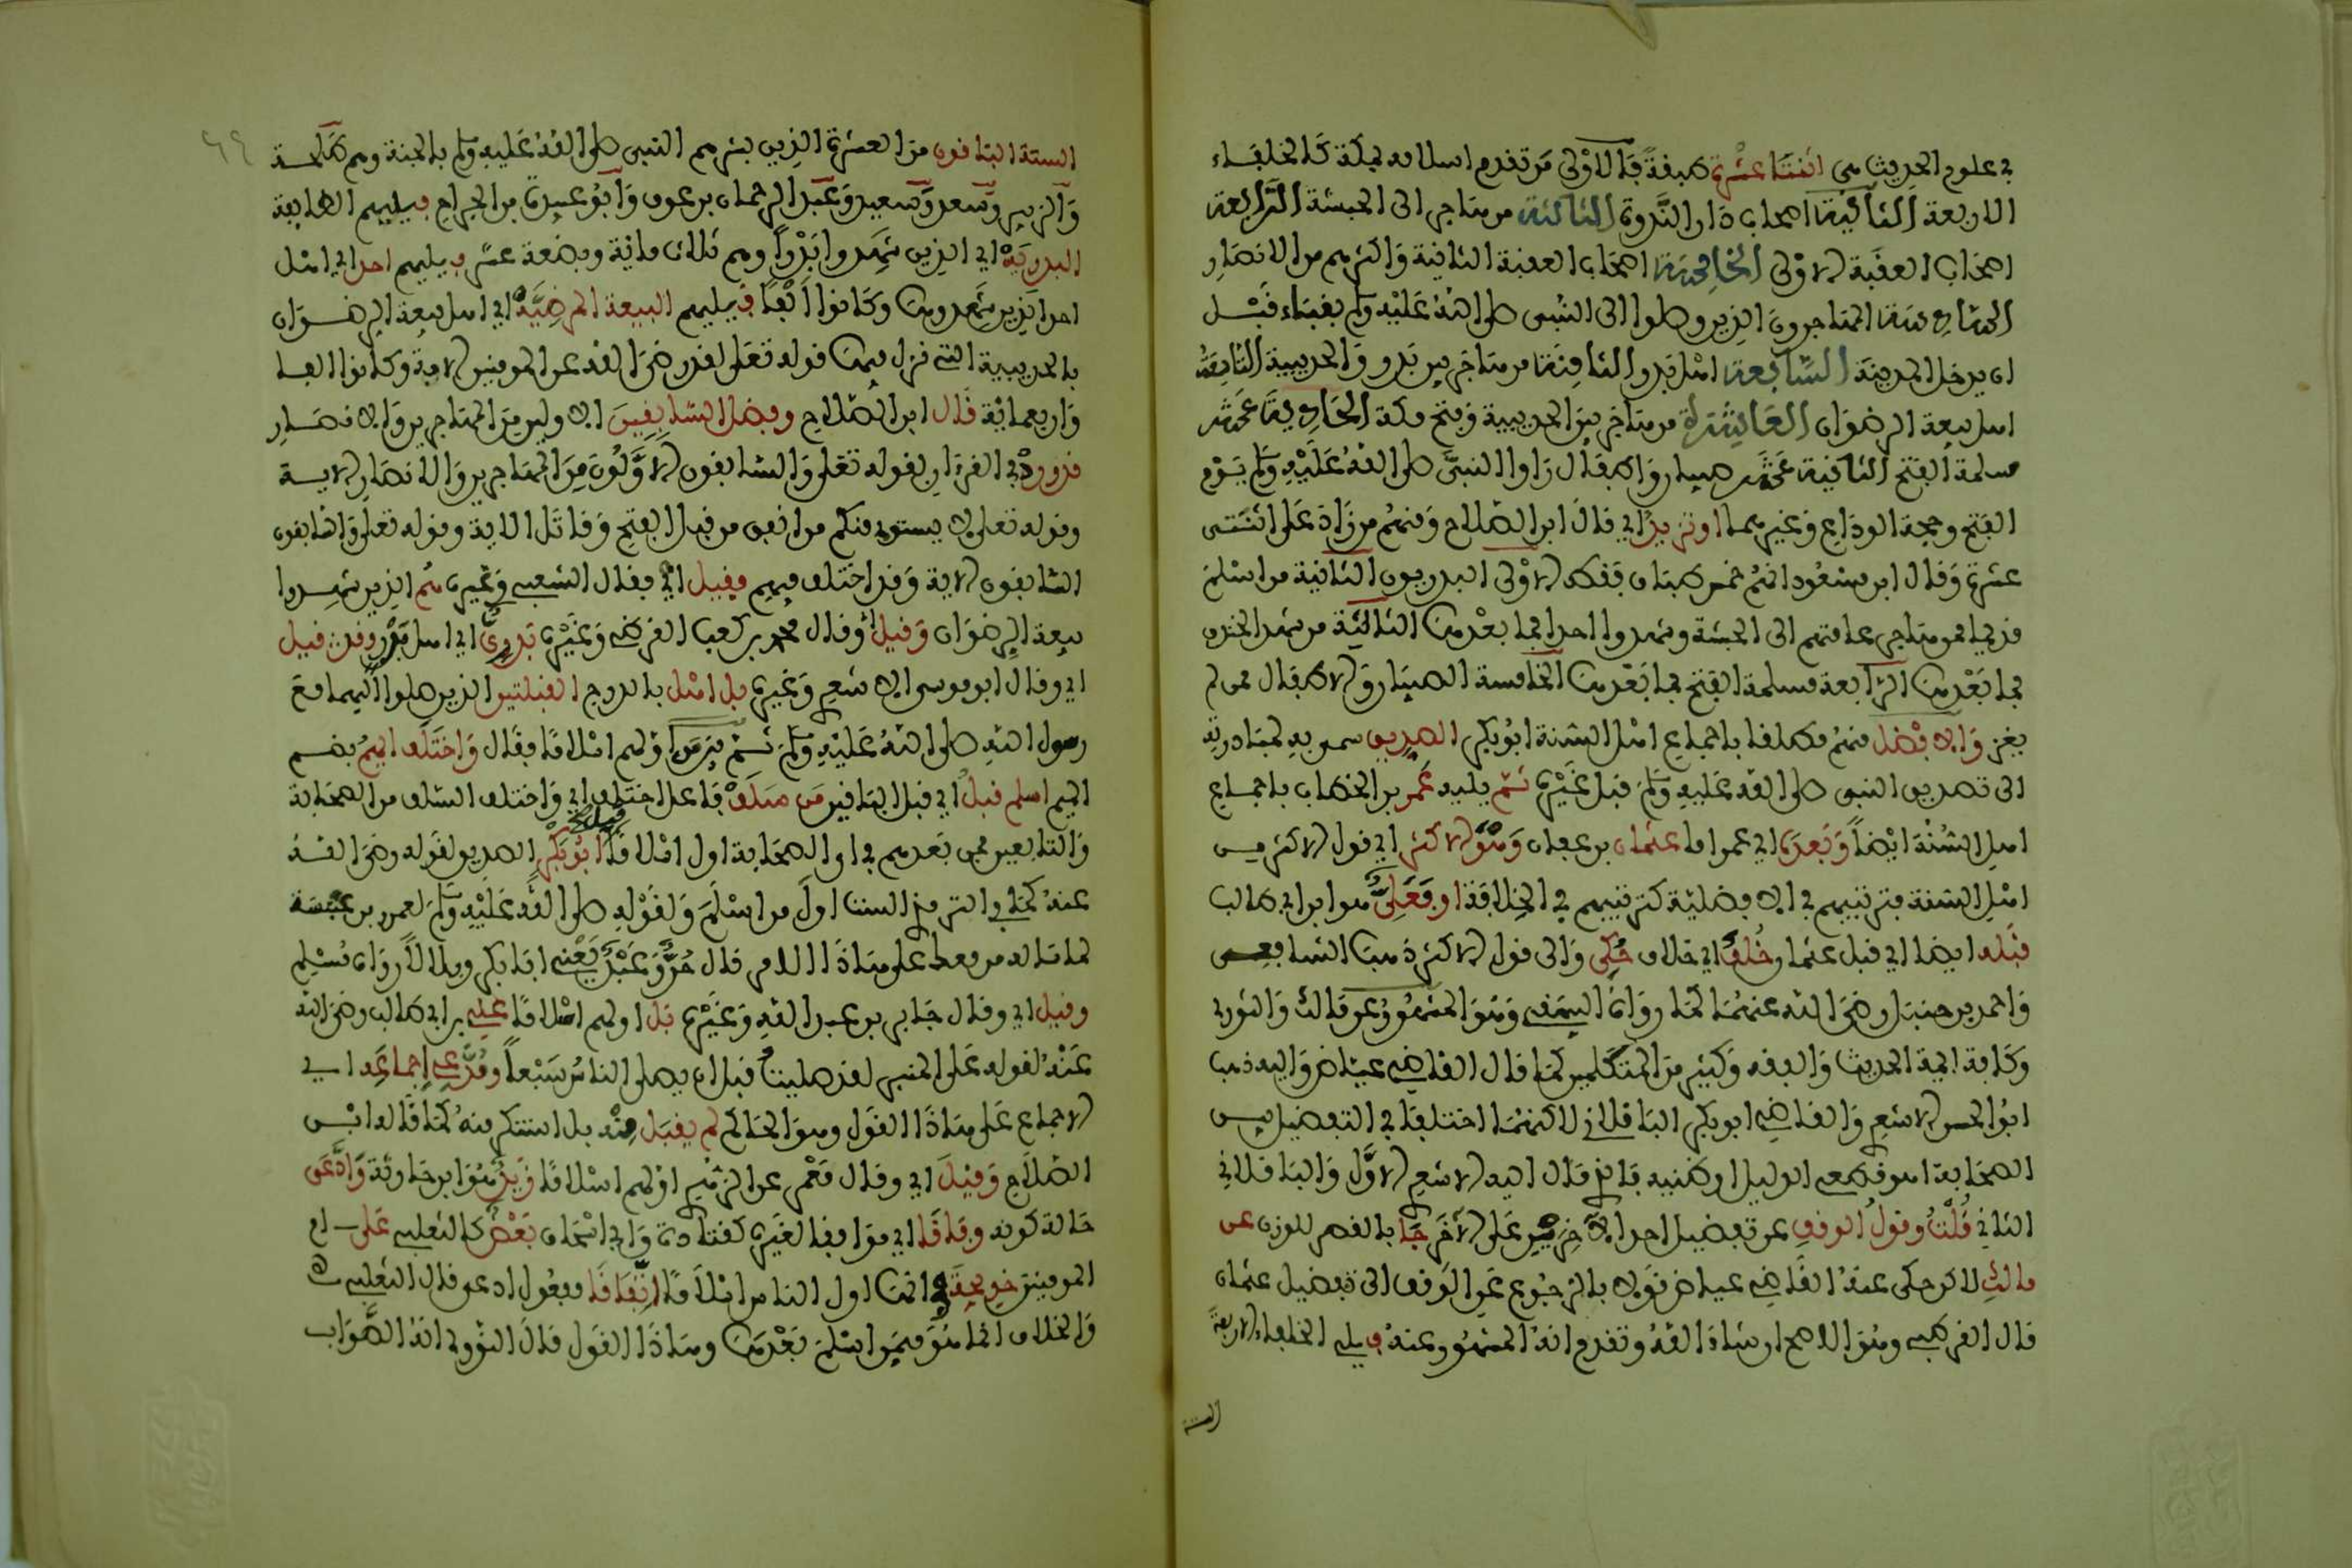 في علوم الحديث هي اثنتا عشرة طبقة فالاولى من تقدم اسلامه بمكة كالخلفاء
الاربعة الثانية اصحاب دار الندوة الثالثة من هاجر الى الحبشة الرابعة
اصحاب العقبة الاولى الخامسة اصحاب العقبة الثانية واكثرهم من الانصار
السادسة المهاجرون الذين وصلوا الى النبي صلى الله عليه وسلم بقباء قبل
ان يدخل المدينة السابعة اهل بدر الثامنة من هاجر بين بدر والحديبية التاسعة
اهل بيعة الرضوان العاشرة من هاجر بين الحديبية وفتح مكة الحادية عشر
مسلمة الفتح الثانية عشر صبيان واطفال راوا النبي صلى الله عليه وسلم يوم
الفتح وحجة الوداع وغيرهما او تزيد اي قال ابن الصلاح ومنهم من زاد على اثنتى
عشرة وقال ابن سعد انهم خمس طبقات فقط الاولى البدريون الثانية من اسلم
قديما ممن هاجر عامتهم الى الحبشة وشهدوا احدا فما بعدها الثالثة من شهد الخندق
فما بعدها الرابعة مسلمة الفتح فما بعدها الخامسة الصبيان والاطفال ممن لم
يغز والافضل منهم مطلقا باجماع اهل السنة ابو بكر الصديق سمي به لمبادرته
الى تصديق النبي صلى الله عليه وسلم قبل غيره ثم يليه عمر بن الخطاب باجماع
اهل السنة ايضا وبعده اي عمر اما عثمان بن عفان وهو الاكثر اي قول الاكثر من
اهل السنة فترتيبهم في الافضلية كترتيبهم في الخلافة او فعلي هو ابن ابي طالب
قبله ايضا اي قبل عثمان خلف اي خلاف حكي والى قول الاكثر ذهب الشافعي
واحمد بن حنبل رضي الله عنهما كما رواه البيهقي وهو المشهور عن مالك والثوري
وكافة ايمة الحديث والفقه وكثير من المتكلمين كما قال القاضي عياض واليه ذهب
ابو الحسن الاشعري والقاضي ابو بكر الباقلاني لاكنهما اختلفا في التفضيل بين
الصحابة اهو قطعي الدليل او ظنيه فالذي مال اليه الاشعري الاول والباقلاني
الثاني قلت وقول الوقف عن تفضيل احد الاخرين على الاخر جا بالقصر للوزن عن
مالك لاكن حكى عنه القاضي عياض قولا بالرجوع عن الوقف الى تفضيل عثمان
قال القرطبي وهو الاصح ان شاء الله وتقدم انه المشهور عنه فيلي الخلفاء الاربعة
الستة
الستة الباقون من العشرة الذين بشرهم النبي صلى الله عليه وسلم بالجنة وهم طلحة
والزبير وسعد وسعيد وعبد الرحمان بن عوف وابو عبيدة بن الجراح فيليهم الطايفة
البدرية اي الذين شهدوا بدرا وهم ثلاث مائة وبضعة عشر فيليهم احد اي اهل
احد الذين شهدوها وكانوا الفا فيليهم البيعة المرضية اي اهل بيعة الرضوان
بالحديبية التي نزل فيها قوله تعلى لقد رضي الله عن المومنين الاية وكانوا الفا
واربعمائة قال ابن الصلاح وفضل السابقين الاولين من المهاجرين والانصار
قد ورد في القرءان لقوله تعلى والسابقون الاولون من المهاجرين والانصار الاية
وقوله تعلى لا يستوي منكم من انفق من قبل الفتح وقاتل الاية وقوله تعلى والسابقون
السابقون الاية وقد اختلف فيهم فقيل اي فقال الشعبي وغيره هم الذين شهدوا
بيعة الرضوان وقيل اي وقال محمد بن كعب القرظي وغيره بدري اي اهل بدر وقد قيل
اي وقال ابو موسى الاشعري وغيره بل اهل بالدرج القبلتين الذين صلوا اليهما مع
رسول الله صلى الله عليه وسلم ثم بين من اولهم اسلاما فقال واختلف ايهم بضم
الميم اسلم قبل اي قبل الباقين من سلف فاعل اختلف اي واختلف السلف من الصحابة
والتابعين فمن بعدهم في اي الصحابة اول اسلاما قيل ابو بكر الصديق لقوله رضي الله
عنه كما في الترمذي الست اول من اسلم ولقوله صلى الله عليه وسلم لعمرو بن عبسة
لما ساله من معك على هاذا الامر قال حر وعبد يعني ابا بكر وبلالا رواه مسلم
وقيل اي وقال جابر بن عبد الله وغيره بل اولهم اسلاما علي بن ابي طالب رضي الله
عنه لقوله على المنبر لقد صليت قبل ان يصلي الناس سبعا ومدعي اجماعه اي
الاجماع على هاذا القول وهو الحاكم لم يقبل منه بل استنكر منه كما قاله ابن
الصلاح وقيل اي وقال معمر عن الزهري اولهم اسلاما زيد هو ابن حارثة وادعى
حالة كونه وفاقا اي موافقا لغيره كقتادة وابي اسحاق بعض كالثعلبي على ان
ام المومنين خديجة هي كانت اول الناس اسلاما اتفاقا مفعول ادعى قال الثعلبي
والخلاف انما هو فيمن اسلم بعدها وهاذا القول قال النووي انه الصواب